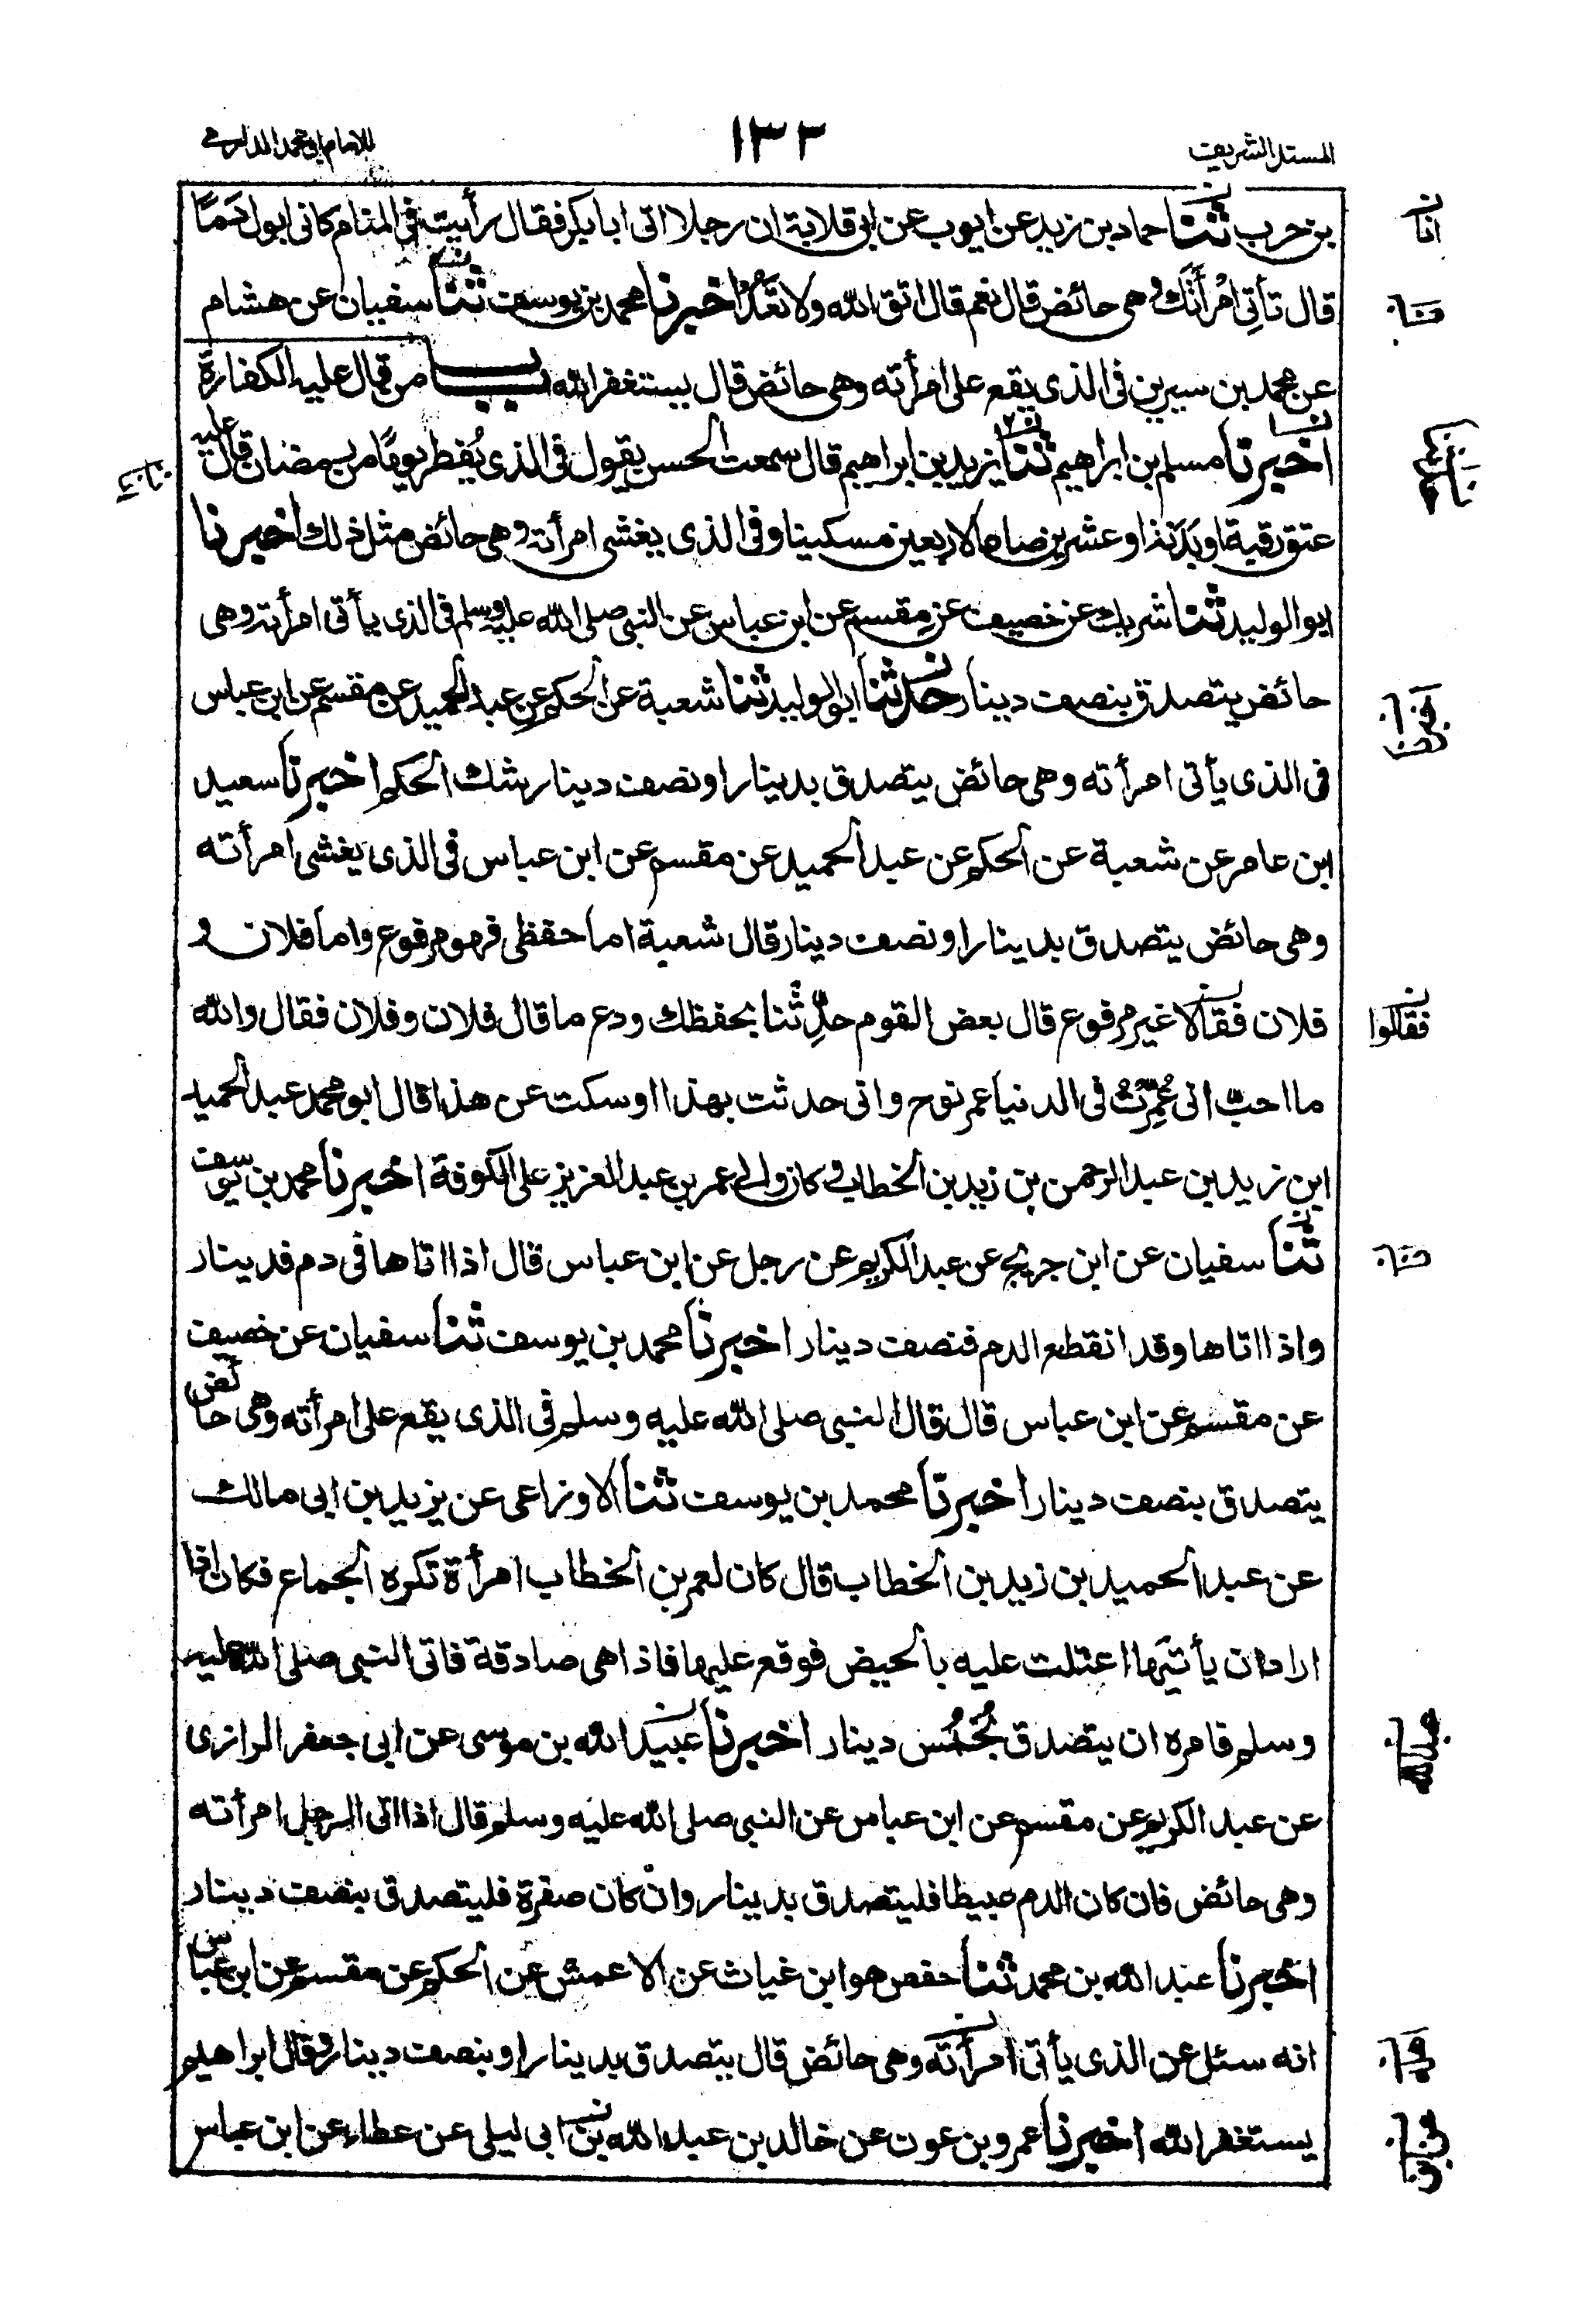 المسند الشريف
١٣٣
للامام ابى محمد الدارمى
بن حرب ثنا حماد بن زيد عن ايوب عن ابى قلابة ان رجلا اتى ابا بكر فقال رأيت فى المنام كانى ابول دَمًا
قال تأتِى امْرأتَك وهى حائض قال نعم قال اتق الله ولا تَعُدْ اخبرنا محمد بن يوسف ثنا سفيان عن هشام
عن محمد بن سيرين فى الذى يقع على امرأته وهى حائض قال يستغفر الله باب من قال عليه الكفارة
اخبرنا مسلم بن ابراهيم ثنا يزيد بن ابراهيم قال سمعت الحسن يقول فى الذى يُفطر يومًا من رمضان قال عليه
عتق رقبة او بَدَنة او عشرين صاعا لاربعين مسكينا وفى الذى يغشى امرأته وهى حائض مثل ذلك اخبرنا
ابو الوليد ثنا شريك عن خصيف عن مِقسم عن ابن عباس عن النبى صلى الله عليه وسلم فى الذى يأتى امرأته وهى
حائض يتصدق بنصف دينار حدثنا ابو الوليد ثنا شعبة عن الحكم عن عبد الحميد عن مقسم عن ابن عباس
فى الذى يأتى امرأته وهى حائض يتصدق بدينار او نصف دينار شك الحكم اخبرنا سعيد
ابن عامر عن شعبة عن الحكم عن عبد الحميد عن مقسم عن ابن عباس فى الذى يغشى امرأته
وهى حائض يتصدق بدينار او نصف دينار قال شعبة اما حفظى فهو مرفوع واما فلان و
فلان فقالا غير مرفوع قال بعض القوم حدِّثنا بحفظك ودع ما قال فلان وفلان فقال والله
ما احبّ انى عُمِّرتُ فى الدنيا عمر نوح وانى حدثت بهذا او سكت عن هذا قال ابو محمد عبد الحميد
ابن زيد بن عبد الرحمن بن زيد بن الخطاب و كان والى عمر بن عبد العزيز على الكوفة اخبرنا محمد بن يوسف
ثنا سفيان عن ابن جريج عن عبد الكريم عن رجل عن ابن عباس قال اذا اتاها فى دم فدينار
واذا اتاها وقد انقطع الدم فنصف دينار اخبرنا محمد بن يوسف ثنا سفيان عن خصيف
عن مقسم عن ابن عباس قال قال النبى صلى الله عليه وسلم فى الذى يقع على امرأته وهى حائض
يتصدق بنصف دينار اخبرنا محمد بن يوسف ثنا الاوزاعى عن يزيد بن ابى مالك
عن عبد الحميد بن زيد بن الخطاب قال كان لعمر بن الخطاب امرأة تكره الجماع فكان اذا
اراد ان يأتيَها اعتلت عليه بالحيض فوقع عليها فاذا هى صادقة فاتى النبى صلى الله عليه
وسلم فامره ان يتصدق بخُمُس دينار اخبرنا عبيد الله بن موسى عن ابى جعفر الرازى
عن عبد الكريم عن مقسم عن ابن عباس عن النبى صلى الله عليه وسلم قال اذا اتى الرجل امرأته
وهى حائض فان كان الدم عبيطا فليتصدق بدينار وان كان صفرة فليتصدق بنصف دينار
اخبرنا عبد الله بن محمد ثنا حفص هو ابن غياث عن الاعمش عن الحكم عن مقسم عن ابن عباس
انه سئل عن الذى يأتى امرأته وهى حائض قال يتصدق بدينار او بنصف دينار وقال ابراهيم
يستغفر الله اخبرنا عمرو بن عون عن خالد بن عبد الله بن ابى ليلى عن عطاء عن ابن عباس
انا
فقالوا